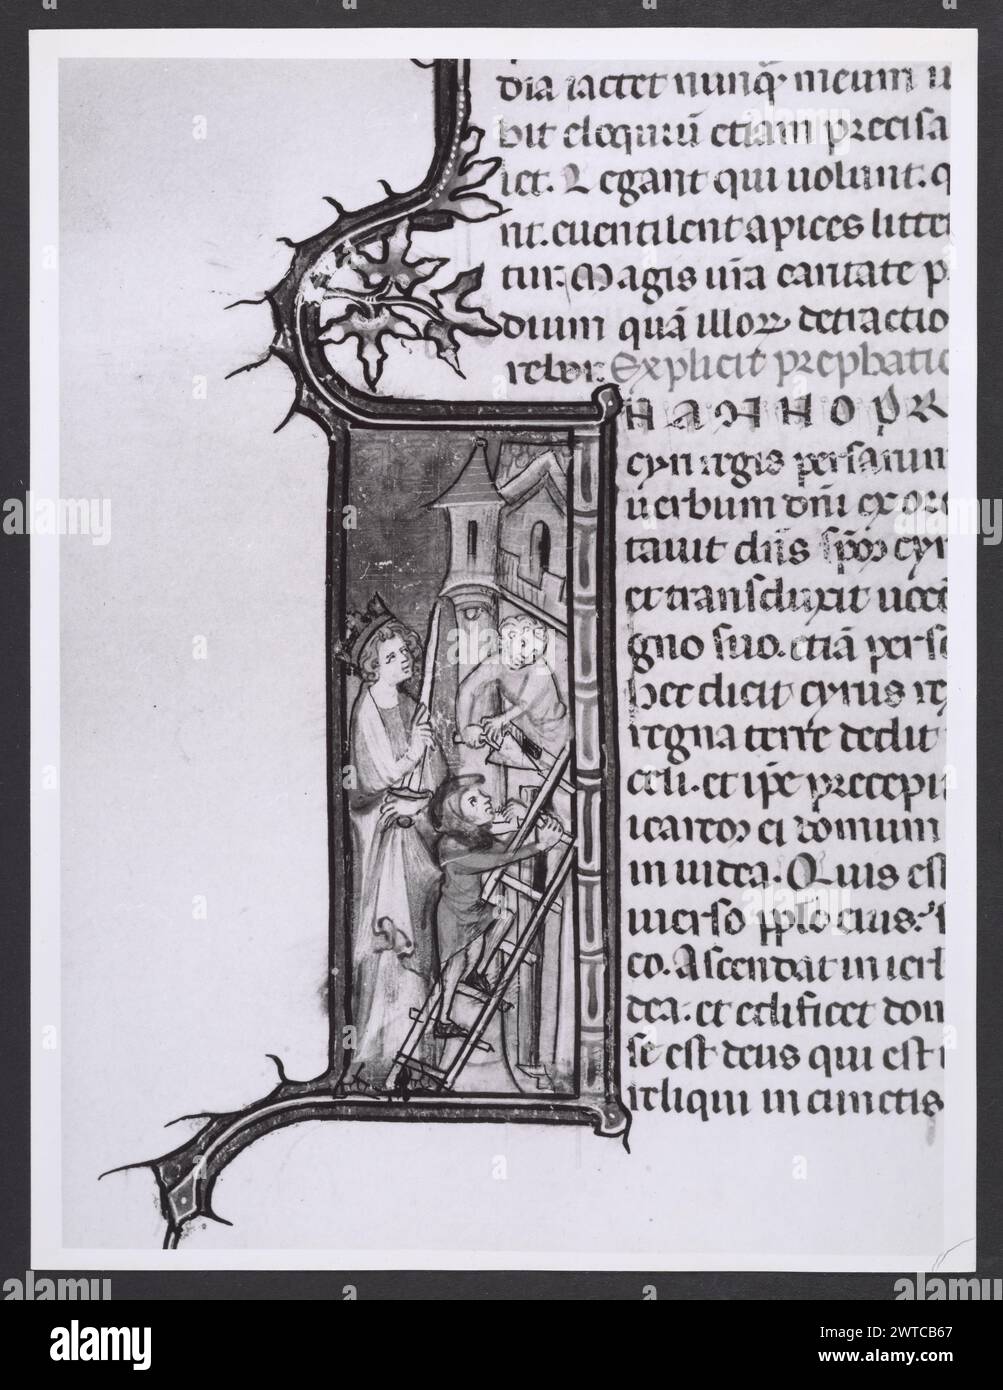 dia iactet nunq̃ meum
bit eloquiũ etiam precisa
icet. Legant qui uolunt. q
nt. euentilent apices litte
tur. Magis uĩa caritate p
dium quã illoꝝ detractio
rebor. Explicit prephatio
N ANNO PR
cyri regis persarum
uerbum dñi ex ore
tauit dñs spm̃ cyri
et transduxit uoce
gno suo. etiã per sc
hec dicit cyrus rex
regna terre dedit
celi. et ip̃e precepit
icaret ei domum
in iudea. Quis est
uerso pplo eius.
co. Ascendat in ierl
dea. et edificet dom
se est deus qui est i
reliqui in cunctis
alamy
Image ID: 2WTCB67
www.alamy.com